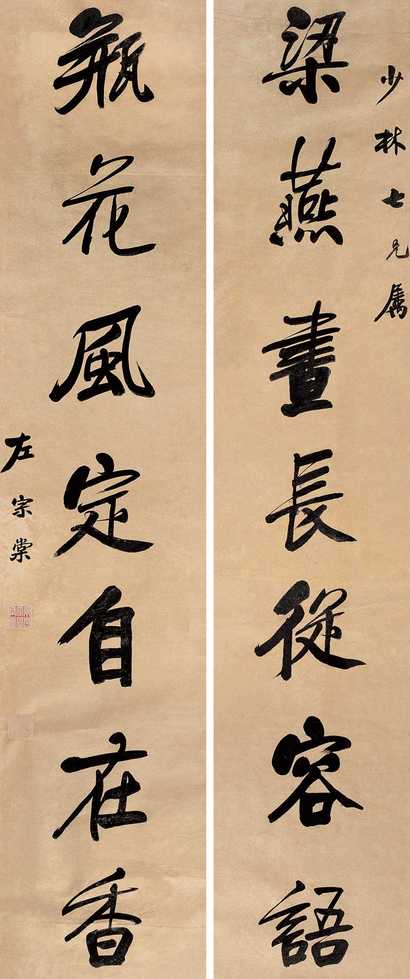 少林七兄屬
梁燕晝長從容語
瓶花風定自在香
左宗棠